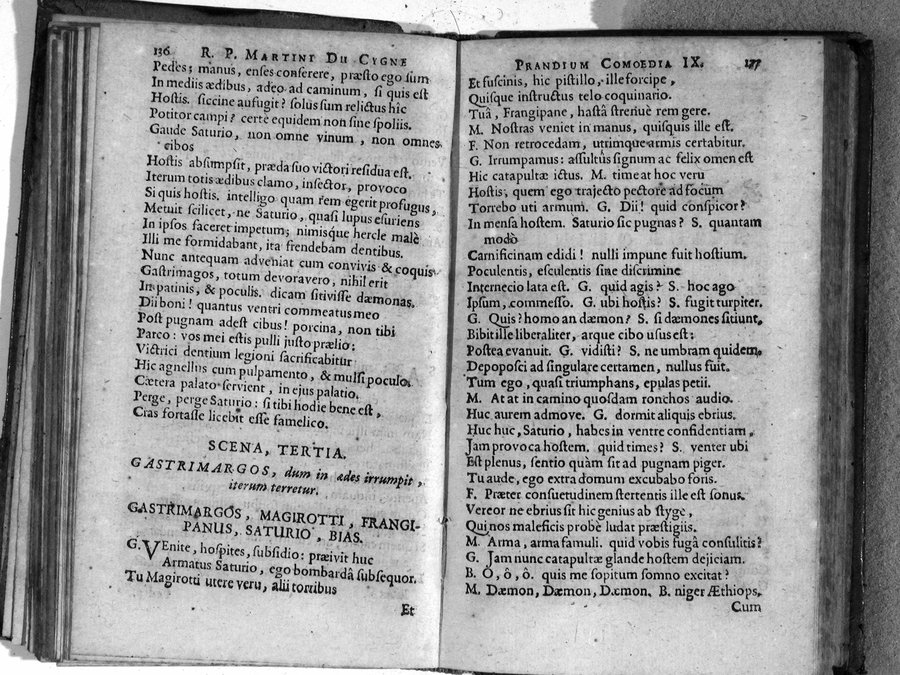 136 R. P. MARTINI DU CYGNE
Pedes; manus, enses conserere, præsto ego sum
In mediis ædibus, adeo ad caminum, si quis est
Hostis. siccine aufugit? solus sum relictus hic
Potitor campi? certè equidem non sine spoliis.
Gaude Saturio, non omne vinum, non omnes
cibos
Hostis absumpsit, præda suo victori residua est.
Iterum totis ædibus clamo, insector, provoco
Si quis hostis. intelligo quam rem egerit profugus,
Metuit scilicet, ne Saturio, quasi lupus esuriens
In ipsos faceret impetum; nimisque hercle malè
Illi me formidabant, ita frendebam dentibus.
Nunc antequam adveniat cum convivis & coquis
Gastrimagos, totum devoravero, nihil erit
In patinis, & poculis. dicam sitivisse dæmonas.
Dii boni! quantus ventri commeatus meo
Post pugnam adest cibus! porcina, non tibi
Parco: vos mei estis pulli justo prælio:
Victrici dentium legioni sacrificabitur
Hic agnellus cum pulpamento, & mulsi poculo.
Cætera palato servient, in ejus palatio.
Perge, perge Saturio: si tibi hodie bene est,
Cras fortasse licebit esse famelico.
SCENA, TERTIA.
GASTRIMARGOS, dum in ædes irrumpit,
iterum terretur.
GASTRIMARGOS, MAGIROTTI, FRANGI-
PANUS, SATURIO, BIAS.
G. VEnite, hospites, subsidio: præivit huc
Armatus Saturio, ego bombardâ subsequor.
Tu Magirotti utere veru, alii torribus
Et
PRANDIUM COMOEDIA IX. 137
Et fuscinis, hic pistillo, ille forcipe,
Quisque instructus telo coquinario.
Tuâ, Frangipane, hastâ strenuè rem gere.
M. Nostras veniet in manus, quisquis ille est.
F. Non retrocedam, utrimque armis certabitur.
G. Irrumpamus: assultûs signum ac felix omen est
Hic catapultæ ictus. M. timeat hoc veru
Hostis, quem ego trajecto pectore ad focum
Torrebo uti armum. G. Dii! quid conspicor?
In mensa hostem. Saturio sic pugnas? S. quantam
modò
Carnificinam edidi! nulli impune fuit hostium.
Poculentis, esculentis sine discrimine
Internecio lata est. G. quid agis? S. hoc ago
Ipsum, commesso. G. ubi hostis? S. fugit turpiter.
G. Quis? homo an dæmon? S. si dæmones sitiunt,
Bibit ille liberaliter, atque cibo usus est:
Postea evanuit. G. vidisti? S. ne umbram quidem,
Depoposci ad singulare certamen, nullus fuit.
Tum ego, quasi triumphans, epulas petii.
M. At at in camino quosdam ronchos audio.
Huc aurem admove. G. dormit aliquis ebrius.
Huc huc, Saturio, habes in ventre confidentiam,
Jam provoca hostem. quid times? S. venter ubi
Est plenus, sentio quàm sit ad pugnam piger.
Tu aude, ego extra domum excubabo foris.
F. Præter consuetudinem stertentis ille est sonus.
Vereor ne ebrius sit hic genius ab styge,
Qui nos maleficis probè ludat præstigiis.
M. Arma, arma famuli. quid vobis fugâ consulitis?
G. Jam nunc catapultæ glande hostem dejiciam.
B. O, ô, ô. quis me sopitum somno excitat?
M. Dæmon, Dæmon, Dæmon. B. niger Æthiops,
Cum